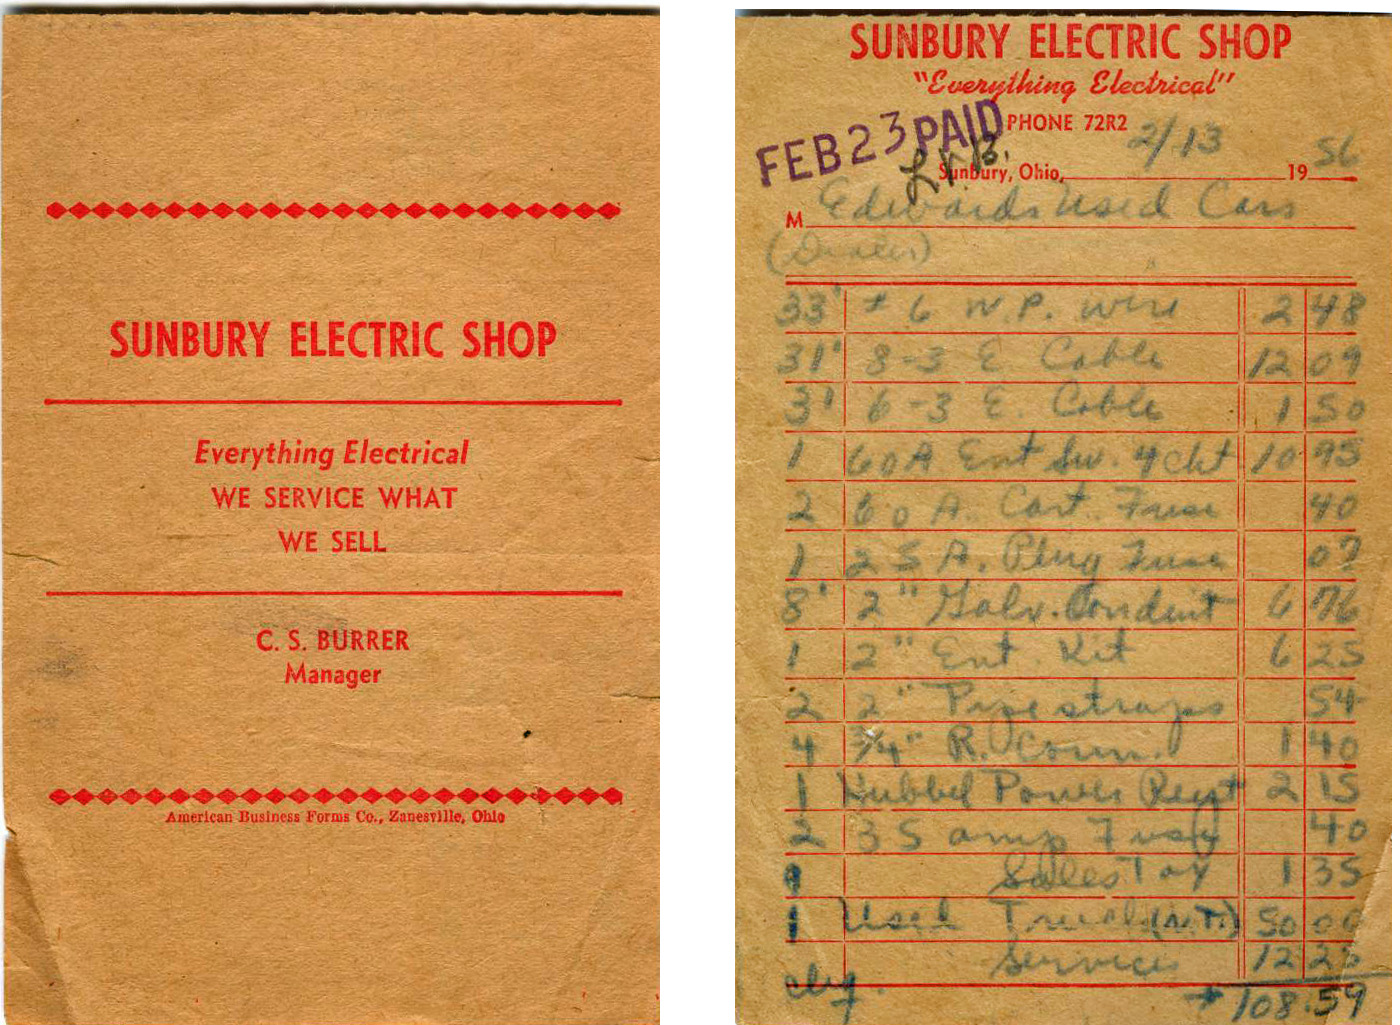 SUNBURY ELECTRIC SHOP
Everything Electrical
WE SERVICE WHAT
WE SELL
C. S. BURRER
Manager
American Business Forms Co., Zanesville, Ohio
SUNBURY ELECTRIC SHOP
"Everything Electrical"
PHONE 72R2
FEB 23 PAID
Sunbury, Ohio, 2/13 19 56
M Edwards Used Cars
(Dealer)
33' # 6 W.P. Wire 2 48
31' 8-3 E Cable 12 09
3' 6-3 E. Cable 1 50
1 60A Ent Sw. 4 ckt 10 95
2 60 A. Cart. Fuse 40
1 25 A. Plug Fuse 07
8' 2" Galv. Conduit 6 76
1 2" Ent. Kit 6 25
2 2" Pipe straps 54
4 3/4" R. Conn. 1 40
1 Hubbel Power Rept 2 15
2 35 amp Fuse 40
Sales Tax 1 35
1 Used Truck (N.T.) 50 00
Services 12 25
chg. 108.59